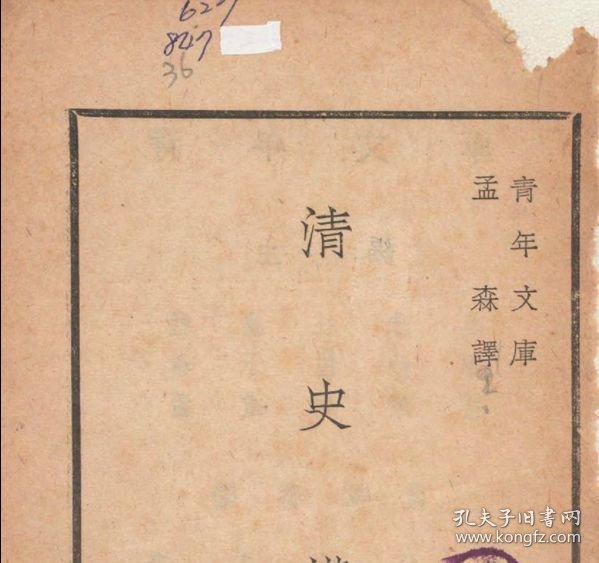 627
847
36
青年文庫
孟森譯
清史
孔夫子旧书网
www.kongfz.com